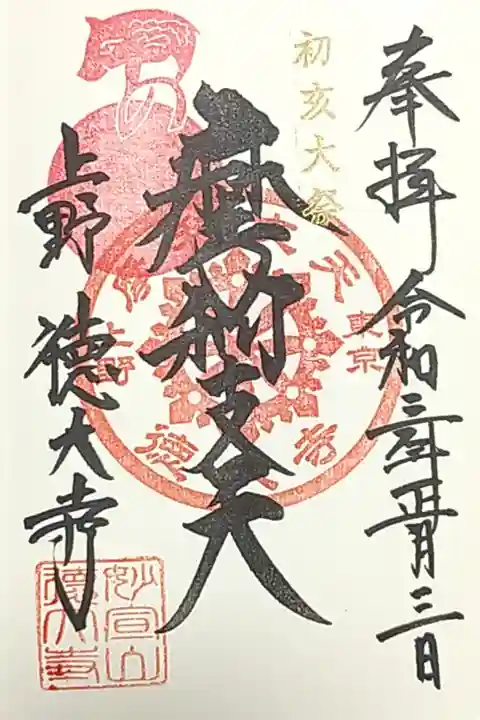 奉拝 令和三年正月三日
初亥大祭
摩利支天
上野 徳大寺
東京
上野
妙宣山
徳大寺